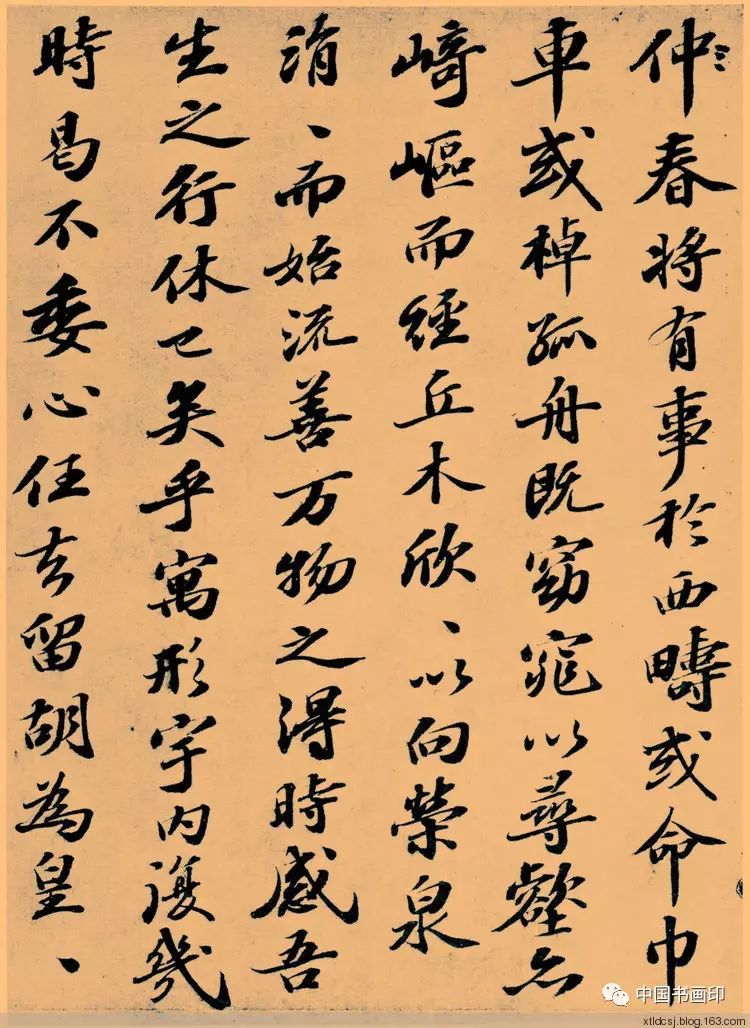 仲春将有事於西疇或命巾
車或棹孤舟既窈窕以尋壑亦
崎嶇而經丘木欣、以向榮泉
涓、而始流善万物之得時感吾
生之行休已矣乎寓形宇内復幾
時曷不委心任去留胡為皇、
中国书画印
xtldcsj.blog.163.com